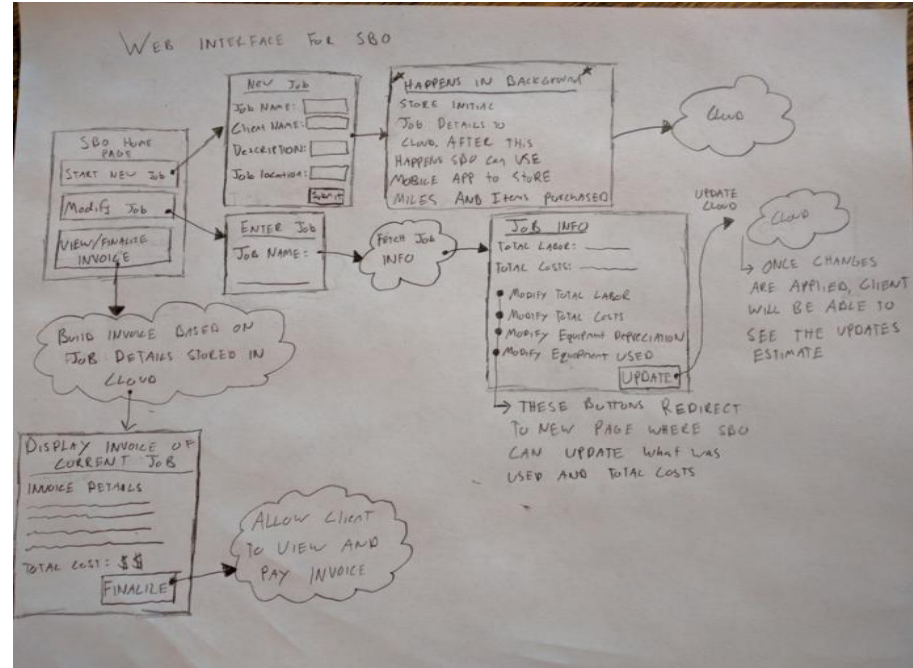 WEB INTERFACE FOR SBO
SBO HOME
PAGE
START NEW Job
Modify Job
VIEW/FINALIZE
INVOICE
NEW Job
Job NAME:
Client NAME:
DESCRIPTION:
Job location:
Submit
* HAPPENS IN BACKGROUND *
STORE INITIAL
JOB DETAILS TO
CLOUD. AFTER THIS
HAPPENS SBO CAN USE
MOBILE APP TO STORE
MILES AND ITEMS PURCHASED
CLOUD
ENTER Job
JOB NAME:
FETCH JOB
INFO
JOB INFO
TOTAL LABOR:
TOTAL COSTS:
• MODIFY TOTAL LABOR
• MODIFY TOTAL COSTS
• MODIFY EQUIPMENT DEPRECIATION
• MODIFY EQUIPMENT USED
UPDATE
THESE BUTTONS REDIRECT
TO NEW PAGE WHERE SBO
CAN UPDATE WHAT WAS
USED AND TOTAL COSTS
UPDATE
CLOUD
CLOUD
ONCE CHANGES
ARE APPLIED, CLIENT
WILL BE ABLE TO
SEE THE UPDATES
ESTIMATE
BUILD INVOICE BASED ON
JOB DETAILS STORED IN
CLOUD
DISPLAY INVOICE OF
CURRENT JOB
INVOICE DETAILS
TOTAL COST: $$
FINALIZE
ALLOW Client
TO VIEW AND
PAY INVOICE